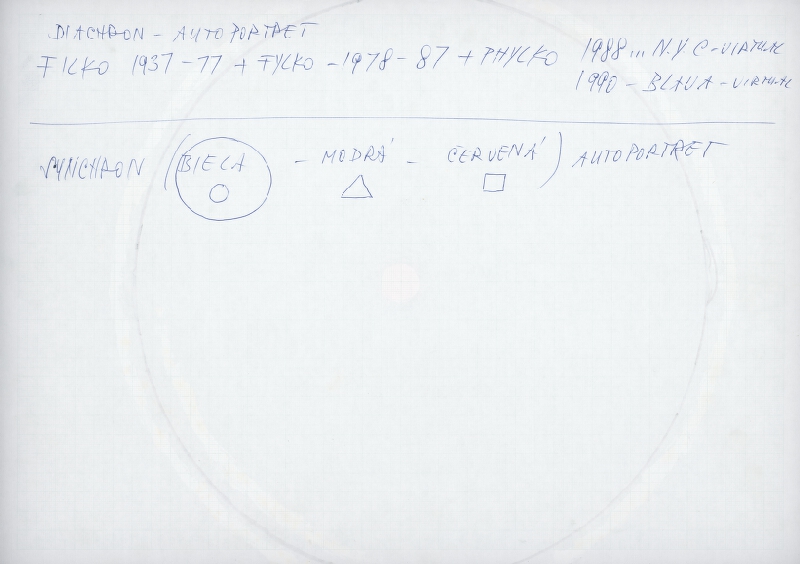 DIACHRON - AUTOPORTRET
FILKO 1937-77 + FYLKO -1978-87 + PHYLKO 1988... N.Y C-VIRTUAL
1990 - BLAVA - VIRTUAL
SYNCHRON (BIELA - MODRÁ - ČERVENÁ) AUTOPORTRET